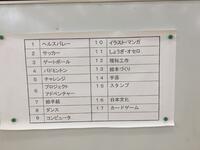 1 ヘルスバレー
2 サッカー
3 ゲートボール
4 バドミントン
5 チャレンジ
6 プロジェクトアドベンチャー
7 絵手紙
8 ダンス
9 コンピュータ
10 イラスト・マンガ
11 しょうぎ・オセロ
12 理科工作
13 絵本づくり
14 手芸
15 スタンプ
16 日本文化
17 カードゲーム